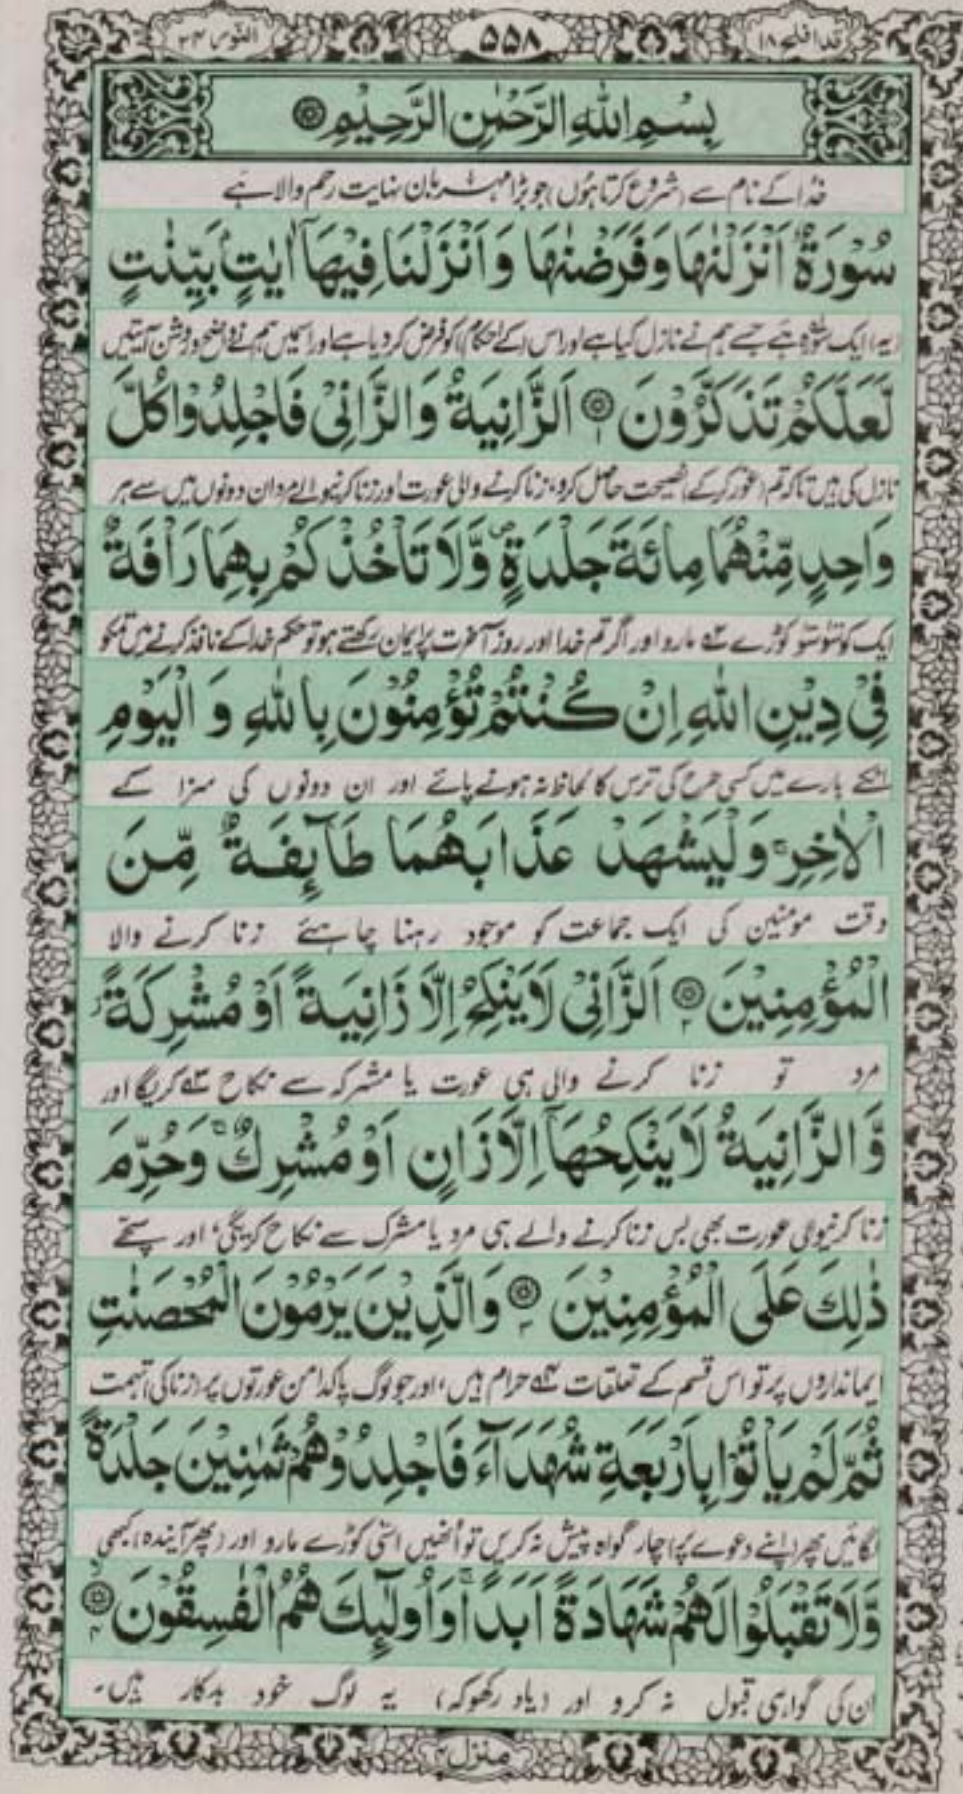 قد افلح ۱۸
۵۵۸
النور ۲۴
بِسْمِ اللّٰهِ الرَّحْمٰنِ الرَّحِيْمِ
خدا کے نام سے (شروع کرتا ہوں) جو بڑا مہربان نہایت رحم والا ہے
سُوْرَةٌ اَنْزَلْنٰهَا وَفَرَضْنٰهَا وَاَنْزَلْنَا فِيْهَاۤ اٰيٰتٍۭ بَيِّنٰتٍ
(یہ) ایک سورہ ہے جسے ہم نے نازل کیا ہے اور اس کے احکام کو فرض کر دیا ہے اور اسمیں ہم نے واضح و روشن آیتیں
لَّعَلَّكُمْ تَذَكَّرُوْنَ ۝۱ اَلزَّانِيَةُ وَالزَّانِیْ فَاجْلِدُوْا كُلَّ
نازل کی ہیں تاکہ تم (غور کر کے) نصیحت حاصل کرو، زنا کرنے والی عورت اور زنا کرنیوالے مرد ان دونوں میں سے ہر
وَاحِدٍ مِّنْهُمَا مِائَةَ جَلْدَةٍ ۪ وَّلَا تَاْخُذْكُمْ بِهِمَا رَاْفَةٌ
ایک کو سو سو کوڑے مارو اور اگر تم خدا اور روز آخرت پر ایمان رکھتے ہو تو حکم خدا کے نافذ کرنے میں تمکو
فِیْ دِيْنِ اللّٰهِ اِنْ كُنْتُمْ تُؤْمِنُوْنَ بِاللّٰهِ وَ الْيَوْمِ
انکے بارے میں کسی طرح کی ترس کا لحاظ نہ ہونے پائے اور ان دونوں کی سزا کے
الْاٰخِرِ ۚ وَلْيَشْهَدْ عَذَابَهُمَا طَآىِٕفَةٌ مِّنَ
وقت مومنین کی ایک جماعت کو موجود رہنا چاہئے زنا کرنے والا
الْمُؤْمِنِيْنَ ۝۲ اَلزَّانِیْ لَا يَنْكِحُ اِلَّا زَانِيَةً اَوْ مُشْرِكَةً ؗ
مرد تو زنا کرنے والی ہی عورت یا مشرکہ سے نکاح کریگا اور
وَّالزَّانِيَةُ لَا يَنْكِحُهَاۤ اِلَّا زَانٍ اَوْ مُشْرِكٌ ۚ وَحُرِّمَ
زنا کرنیوالی عورت بھی بس زنا کرنے والے ہی مرد یا مشرک سے نکاح کریگی، اور سچے
ذٰلِكَ عَلَى الْمُؤْمِنِيْنَ ۝۳ وَالَّذِيْنَ يَرْمُوْنَ الْمُحْصَنٰتِ
ایمانداروں پر تو اس قسم کے تعلقات حرام ہیں، اور جو لوگ پاکدامن عورتوں پر (زنا کی) تہمت
ثُمَّ لَمْ يَاْتُوْا بِاَرْبَعَةِ شُهَدَآءَ فَاجْلِدُوْهُمْ ثَمٰنِيْنَ جَلْدَةً
لگائیں پھر (اپنے دعوے پر) چار گواہ پیش نہ کریں تو انھیں اسّی کوڑے مارو اور (پھر آیندہ) کبھی
وَّلَا تَقْبَلُوْا لَهُمْ شَهَادَةً اَبَدًا ۚ وَاُولٰٓىِٕكَ هُمُ الْفٰسِقُوْنَ ۝۴
ان کی گواہی قبول نہ کرو اور (یاد رکھو کہ) یہ لوگ خود بدکار ہیں۔
منزل ۴